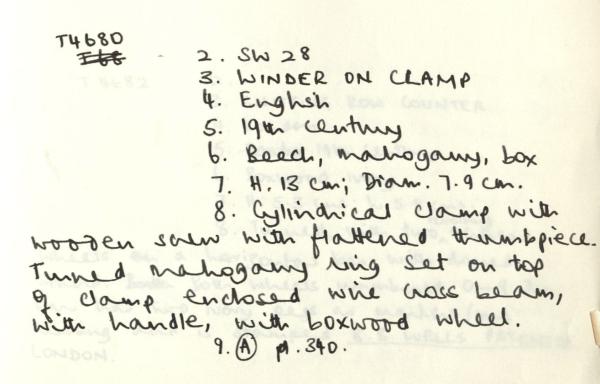 T4680
2. SW 28
3. WINDER ON CLAMP
4. English
5. 19th century
6. Beech, mahogany, box
7. H. 13 cm; Diam. 7.9 cm.
8. Cylindrical clamp with
wooden screw with flattened thumbpiece.
Turned mahogany ring set on top
of clamp enclosed wire cross beam,
with handle, with boxwood wheel.
9. A pl. 340.